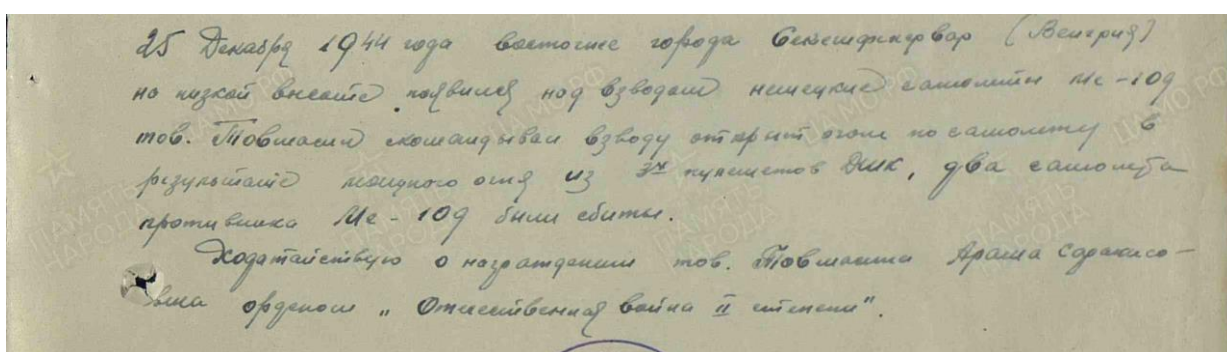 25 Декабря 1944 года восточнее города Секешфехервар (Венгрия)
на низкой высоте появился над взводом немецкие самолеты Ме-109
тов. Товмасян скомандывал взводу открыть огонь по самолету в
результате мощного огня из 3х пулеметов ДШК, два самолета
противника Ме-109 были сбиты.
Ходатайствую о награждении тов. Товмасяна Араша
вича орденом „Отечественная война II степени".
ПАМЯТЬ НАРОДА
ЦАМО РФ